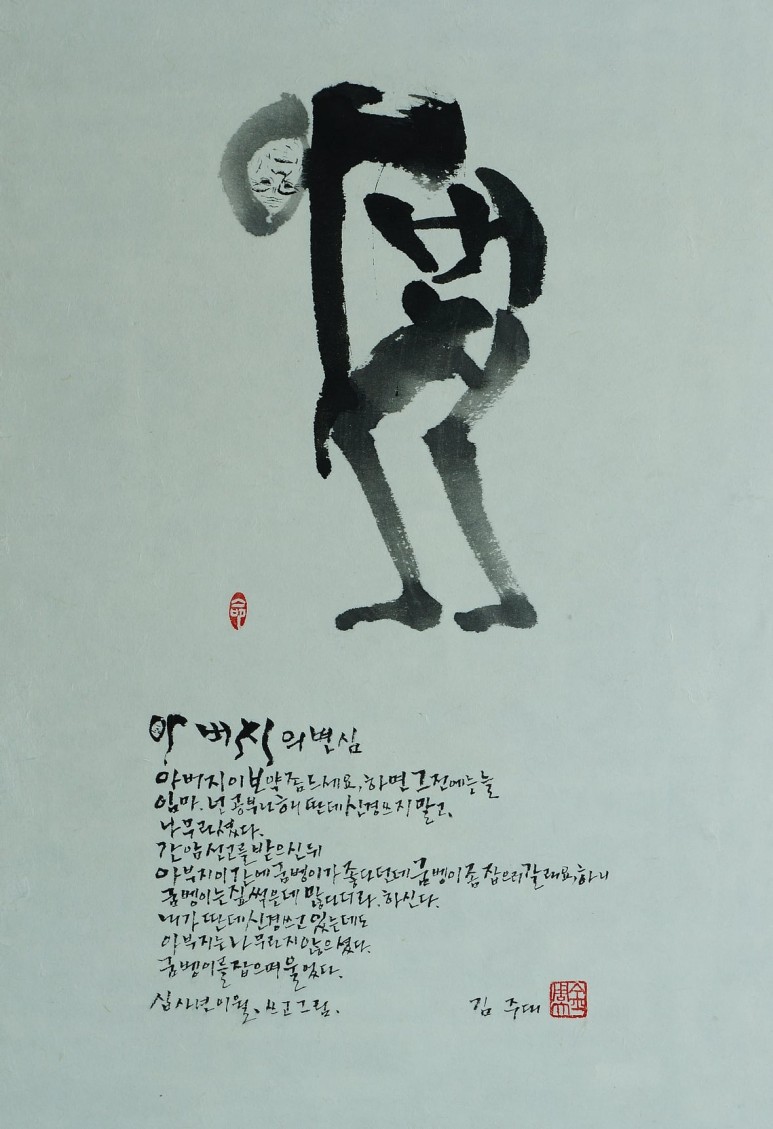 아버지의 변심
아버지 이 보약 좀 드세요, 하면 그전에는 늘
임마. 넌 공부나 해 딴데 신경쓰지 말고,
나무라셨다.
간암 선고를 받으신 뒤
아부지 이 간에 굼벵이가 좋다던데 굼벵이 좀 잡으러 갈래요, 하니
굼벵이는 짚 썩은데 많다더라. 하신다.
내가 딴데 신경쓰고 있는데도
아부지는 나무라지 않으셨다.
굼벵이를 잡으며 울었다.
십사년 이월, 쓰고 그림. 김주대